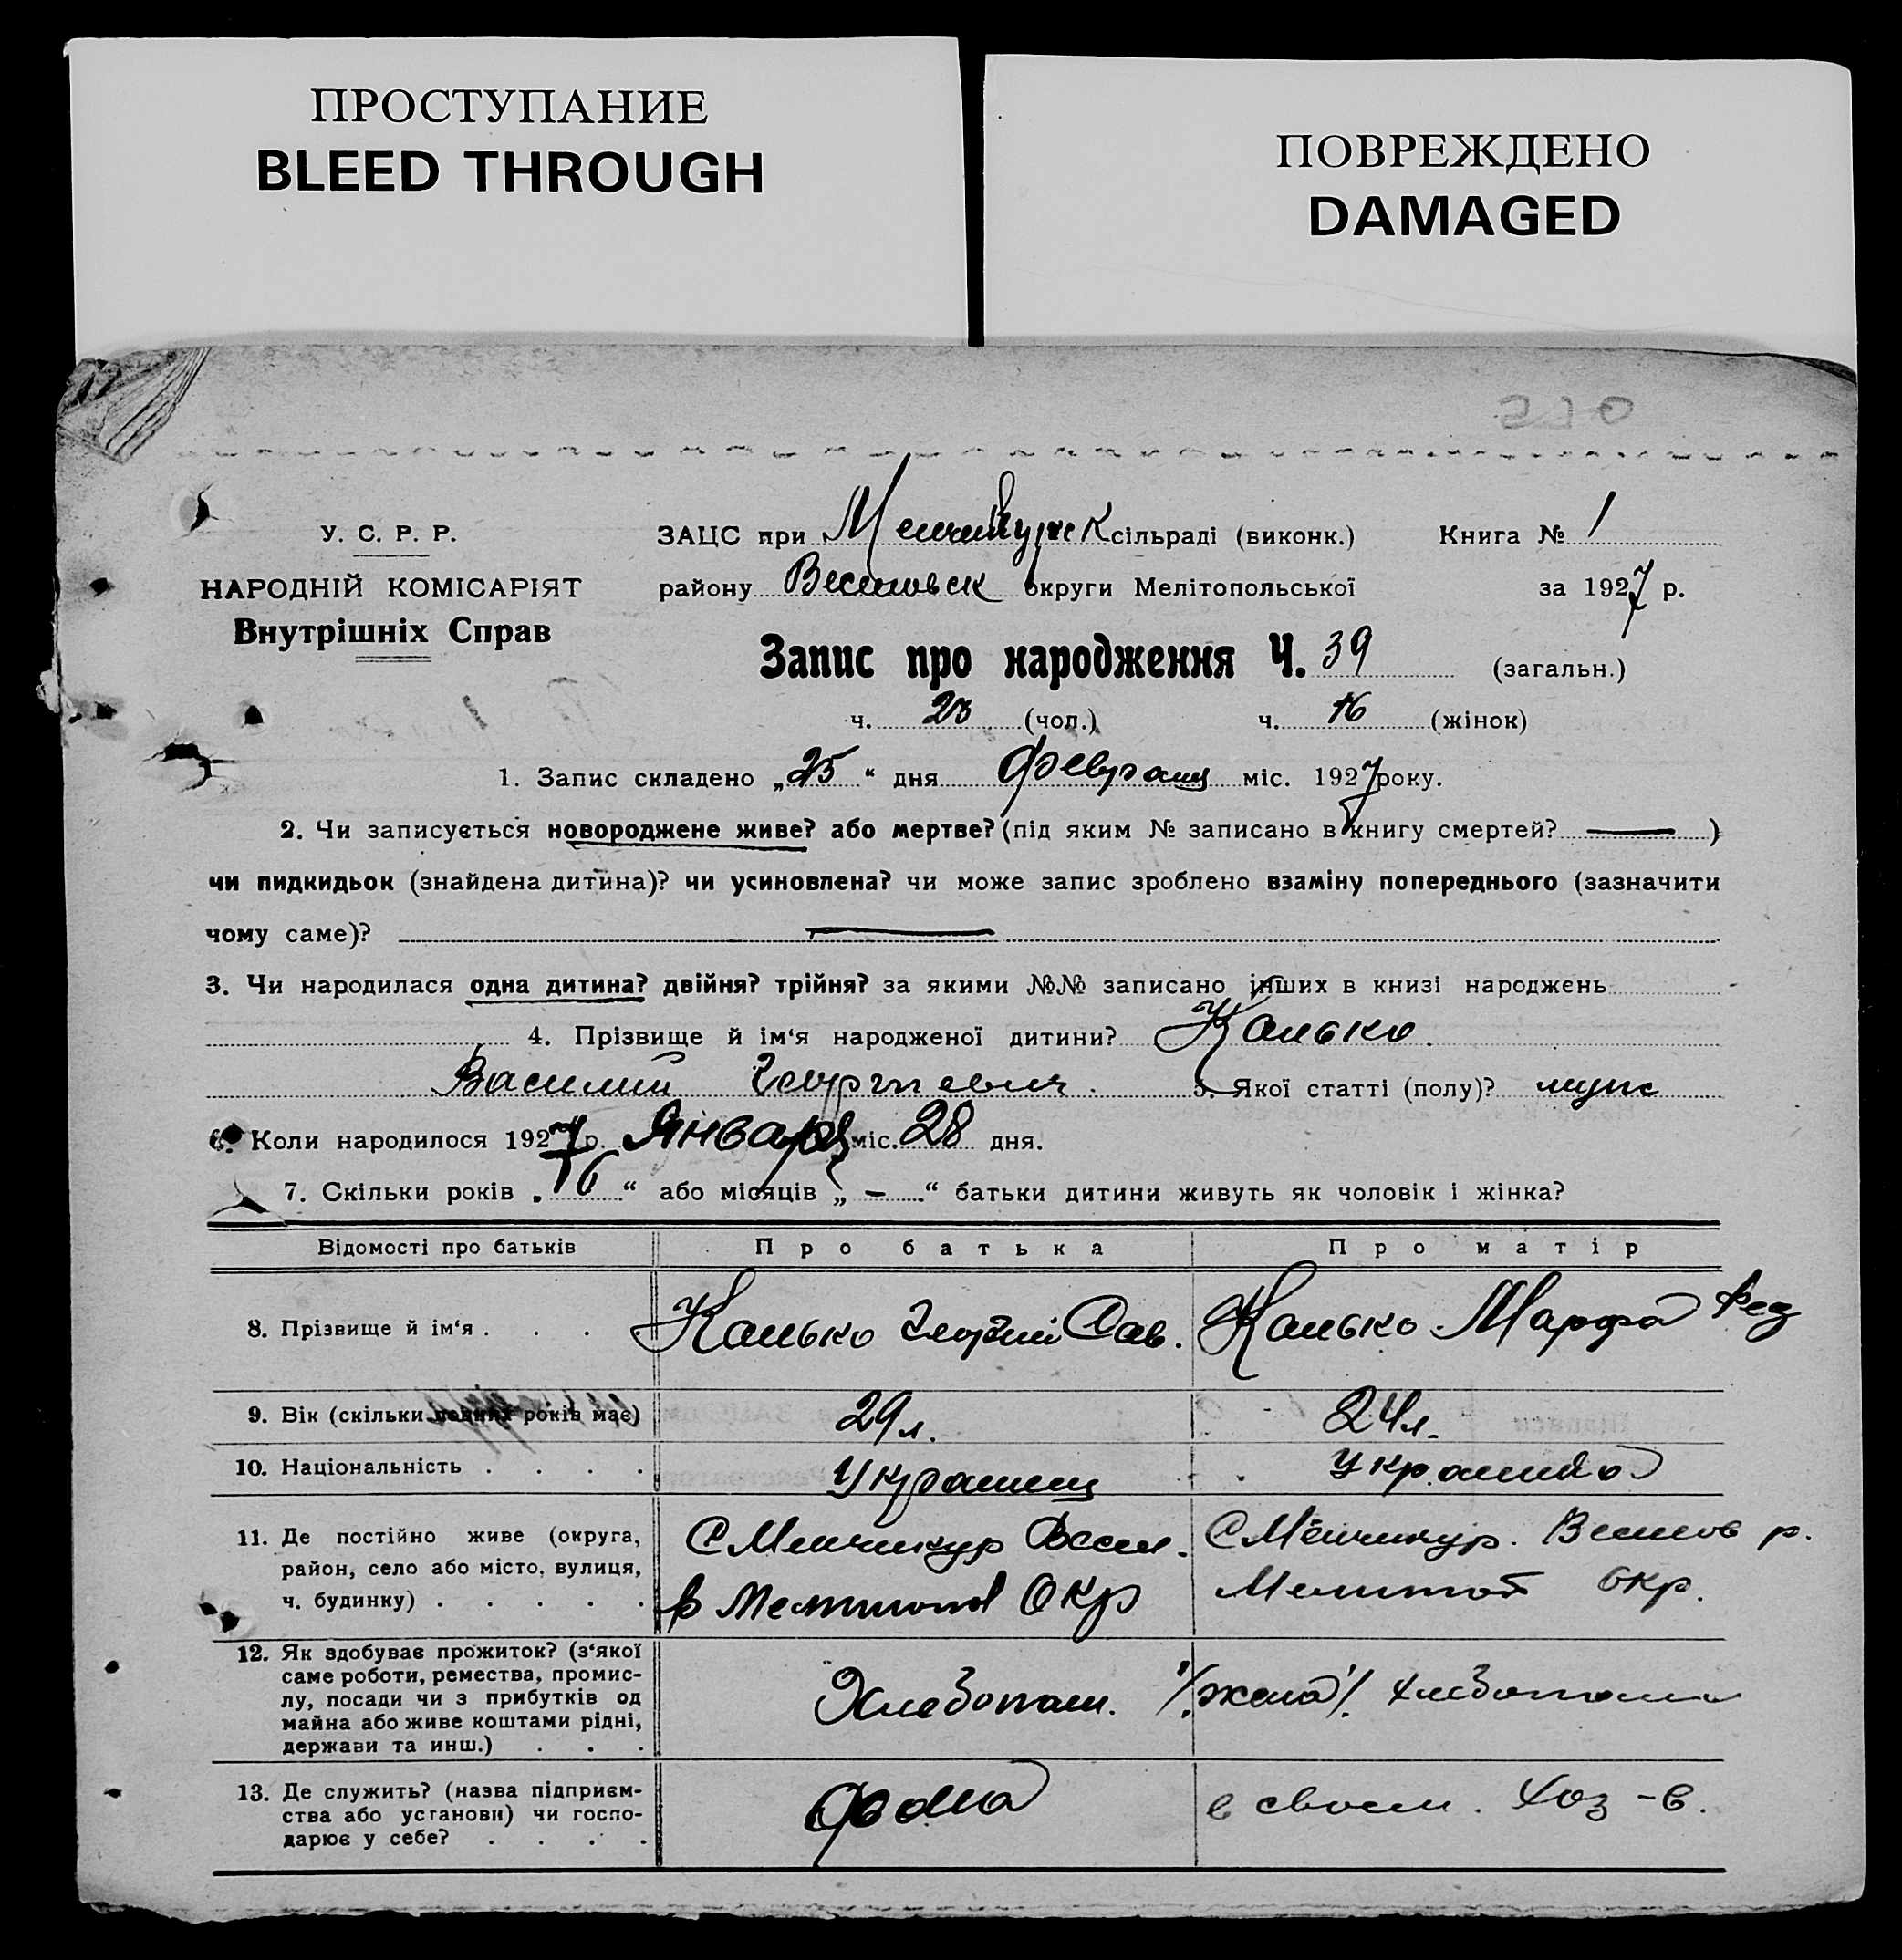 ПРОСТУПАНИЕ
BLEED THROUGH
ПОВРЕЖДЕНО
DAMAGED
У. С. Р. Р.
НАРОДНІЙ КОМІСАРІЯТ
Внутрішніх Справ
ЗАЦС при сільраді (виконк.) Книга № 1
району Веселовск округи Мелітопольської за 1927 р.
Запис про народження Ч. 39 (загальн.)
ч. 23 (чол.) ч. 16 (жінок)
1. Запис складено „25“ дня Февраля міс. 1927 року.
2. Чи записується новороджене живе? або мертве? (під яким № записано в книгу смертей? — )
чи пидкидьок (знайдена дитина)? чи усиновлена? чи може запис зроблено взаміну попереднього (зазначити
чому саме)? —
3. Чи народилася одна дитина? двійня? трійня? за якими №№ записано інших в книзі народжень
4. Прізвище й ім‘я народженої дитини? Канько.
Василий Георгиевич. 5. Якої статті (полу)? муж
6. Коли народилося 1927 р. Января міс. 28 дня.
7. Скільки років „ 6 “ або місяців „ — “ батьки дитини живуть як чоловік і жінка?
Відомості про батьків Про батька Про матір
8. Прізвище й ім‘я . . . Канько Георгий Сав. Канько Марфа Фед
9. Вік (скільки повних років має) 29 л. 24 л.
10. Національність . . . . Украинец Украинка
11. Де постійно живе (округа,
район, село або місто, вулиця,
ч. будинку) . . . . .
С Менчикур Весел.
р Мелитопол Окр
С Менчикур. Веселов р.
Мелитоп Окр.
12. Як здобуває прожиток? (з‘якої
саме роботи, ремества, промис-
лу, посади чи з прибутків од
майна або живе коштами рідні,
держави та инш.) . . .
Хлебопаш. /жена/. хлебопаш
13. Де служить? (назва підприєм-
ства або установи) чи госпо-
дарює у себе? . . . .
в своем. хоз-в.